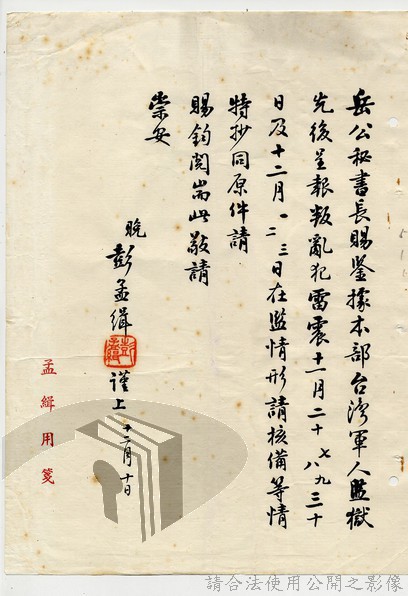 岳公秘書長賜鑒據本部台灣軍人監獄
先後呈報叛亂犯雷震十一月二十七八九三十
日及十二月一二三日在監情形請核備等情
特抄同原件請
賜鈞閱耑此敬請
崇安
晚彭孟緝謹上十二月十日
孟緝用箋
請合法使用公開之影像